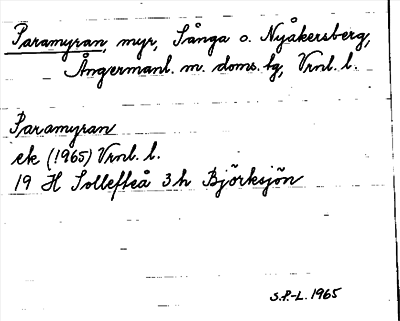 Paramyran, myr, Sånga o. Nyåkersberg,
Ångermanl. m. doms. tg, Vrnl. l.
Paramyran
ek (1965) Vrnl. l.
19 H Sollefteå 3h Björksjön
S.P.-L. 1965